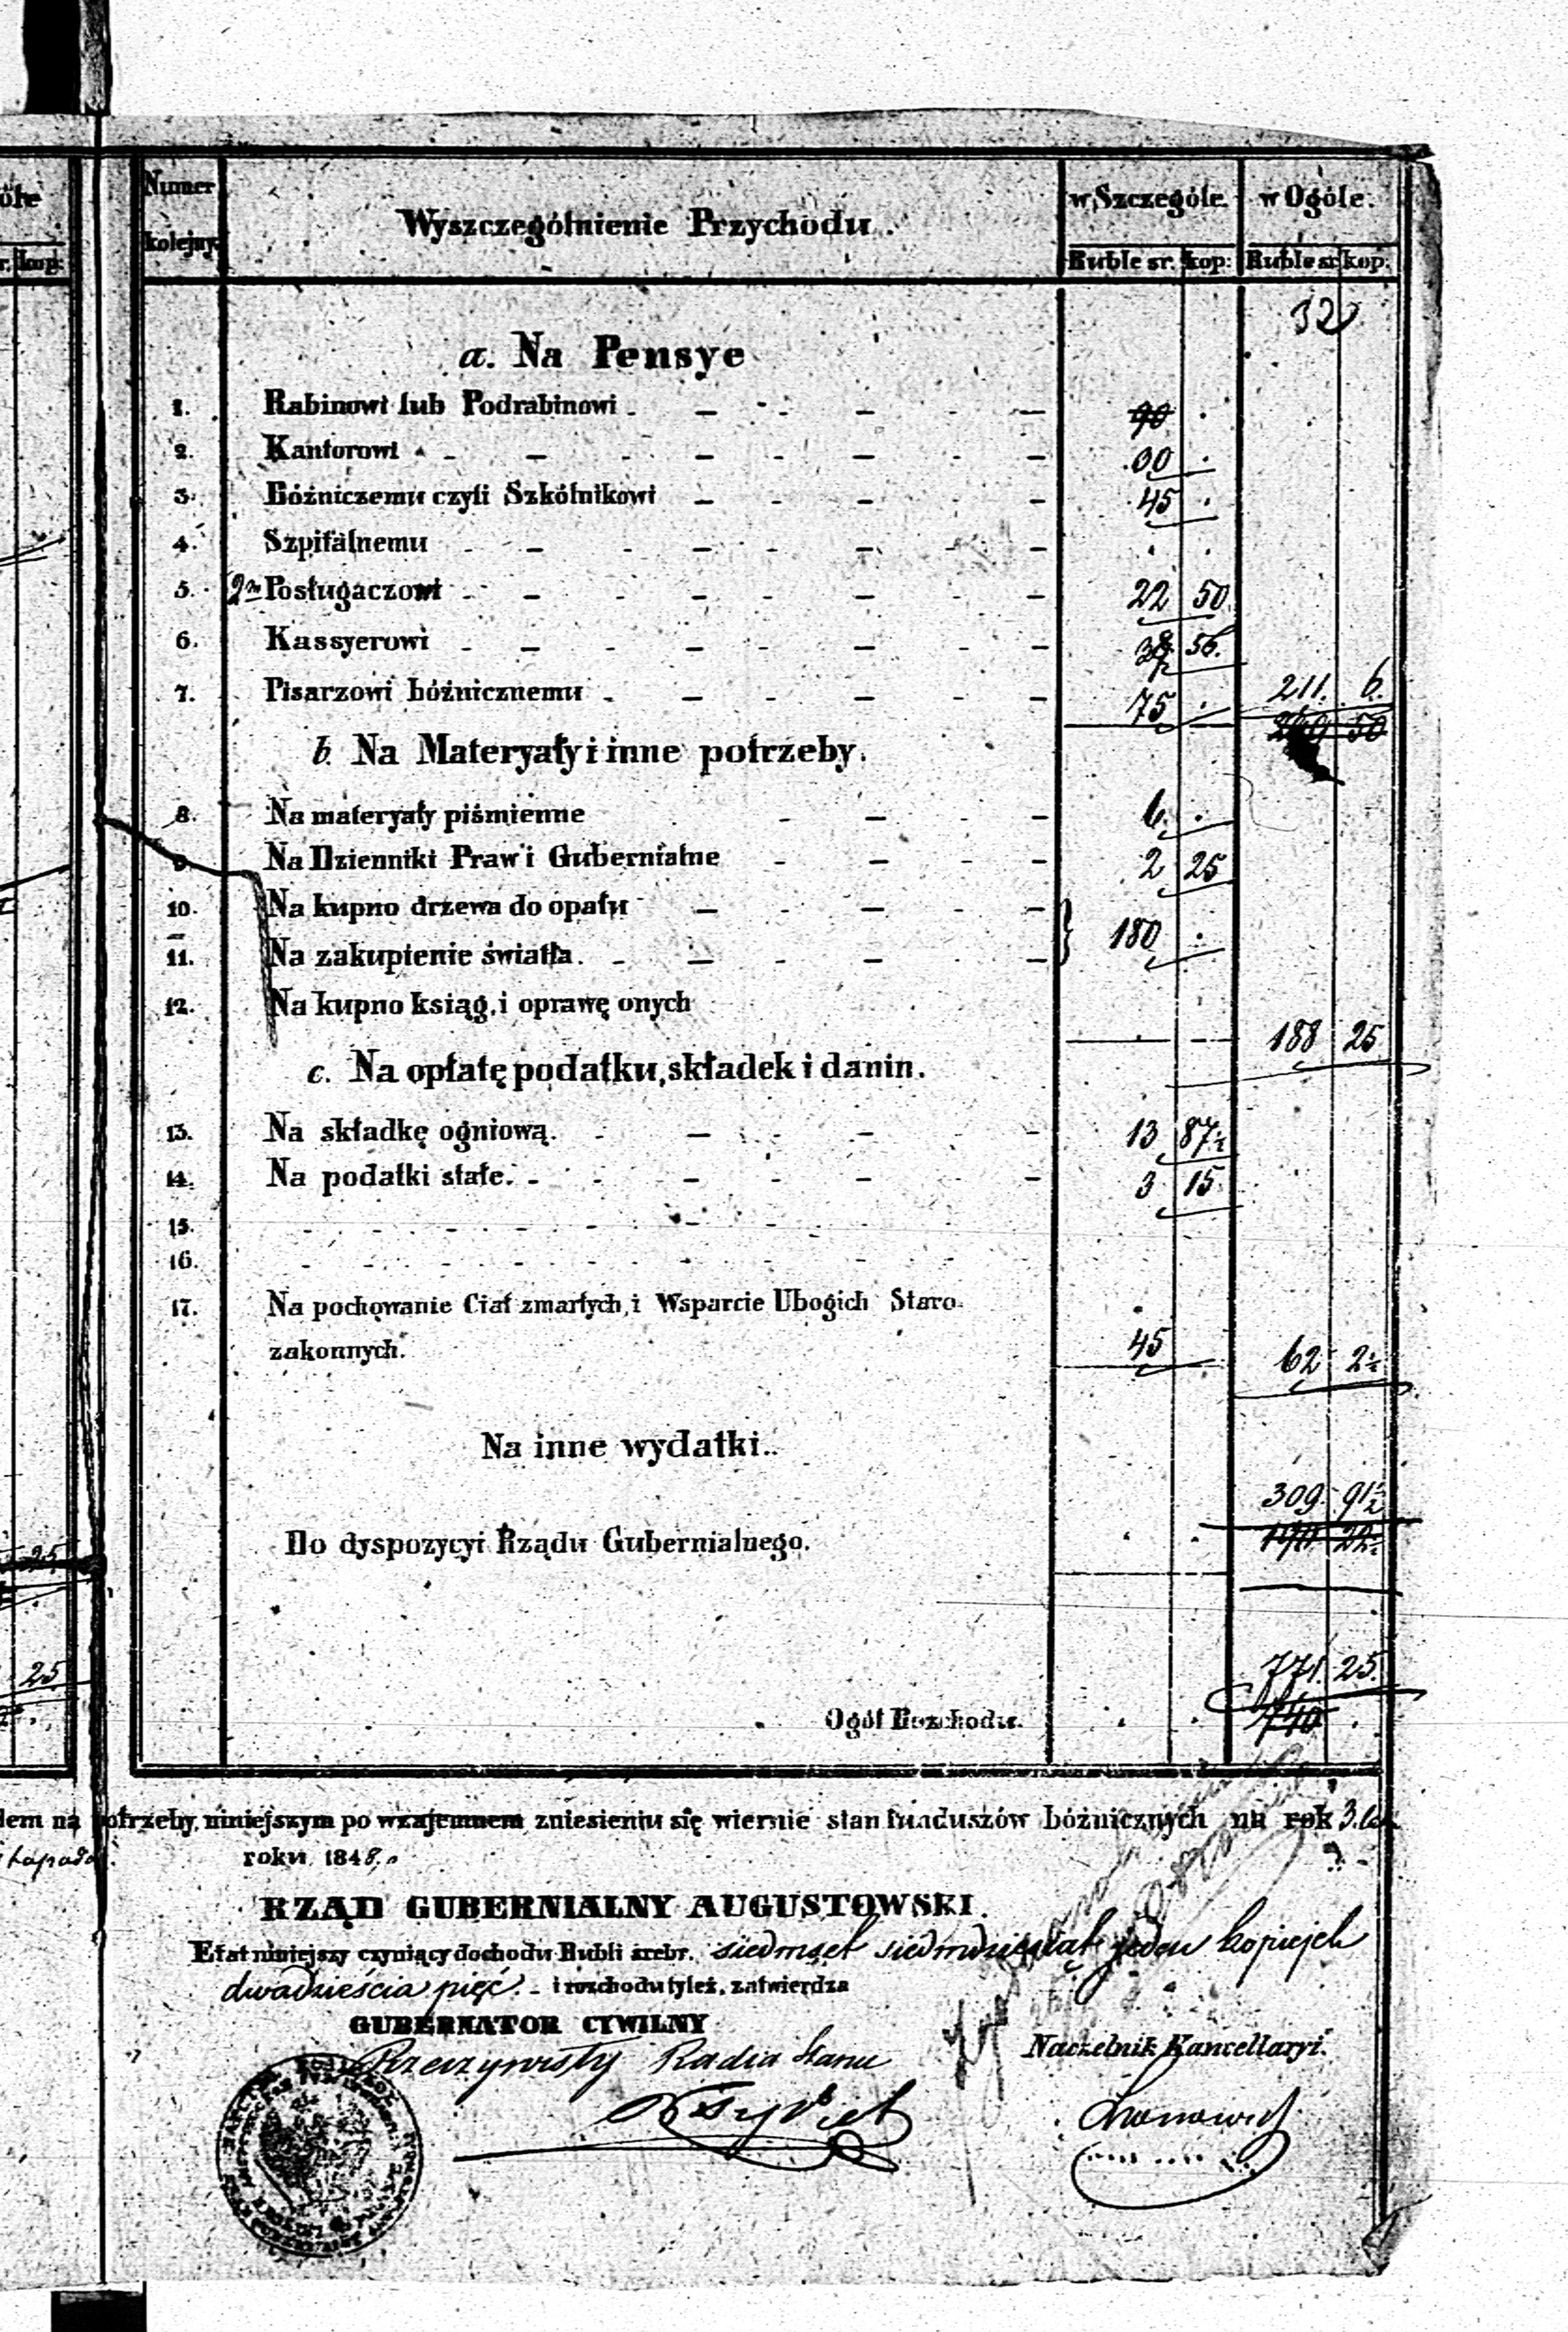 Numer kolejny. Wyszczególnienie Przychodu. w Szczególe. w Ogóle.
Ruble sr. kop: Ruble sr. kop:
32
a. Na Pensye
1. Rabinowi lub Podrabinowi - 90 .
2. Kantorowi - 30 .
3. Bóżniczemu czyli Szkólnikowi - 45 .
4. Szpitalnemu - . .
5. 2m Posługaczowi - 22 50
6. Kassyerowi - 38 56.
7. Pisarzowi bóżnicznemu - 75 . 211. 6.
50
b. Na Materyały i inne potrzeby.
8. Na materyały piśmienne - 6. .
9. Na Dzienniki Praw i Gubernialne - 2 25
10. Na kupno drzewa do opału - } 180 .
11. Na zakupienie światła. -
12. Na kupno ksiąg, i oprawę onych
188 25
c. Na opłatę podatku, składek i danin.
13. Na składkę ogniową. - 13 87½
14. Na podatki stałe. - 3 15
15.
16.
17. Na pochowanie Ciał zmarłych, i Wsparcie Ubogich Staro-
zakonnych. 45 62 2½
Na inne wydatki..
309. 91½
Do dyspozycyi Rządu Gubernialnego. . .
771. 25.
Ogół Rozchodu. . . 740 .
25
25
potrzeby niniejszym po wzajemnem zniesieniu się wiernie stan funduszów bóżnicznych na rok 3.
roku 1848.
RZĄD GUBERNIALNY AUGUSTOWSKI.
Etat niniejszy czyniący dochodu Rubli srebr. siedmset siedmdziesiąt jeden kopiejek
dwadzieścia pięć. - i rozchodu tyleż, zatwierdza
GUBERNATOR CYWILNY
Rzeczywisty Radca Stanu
Naczelnik Kancellaryi.